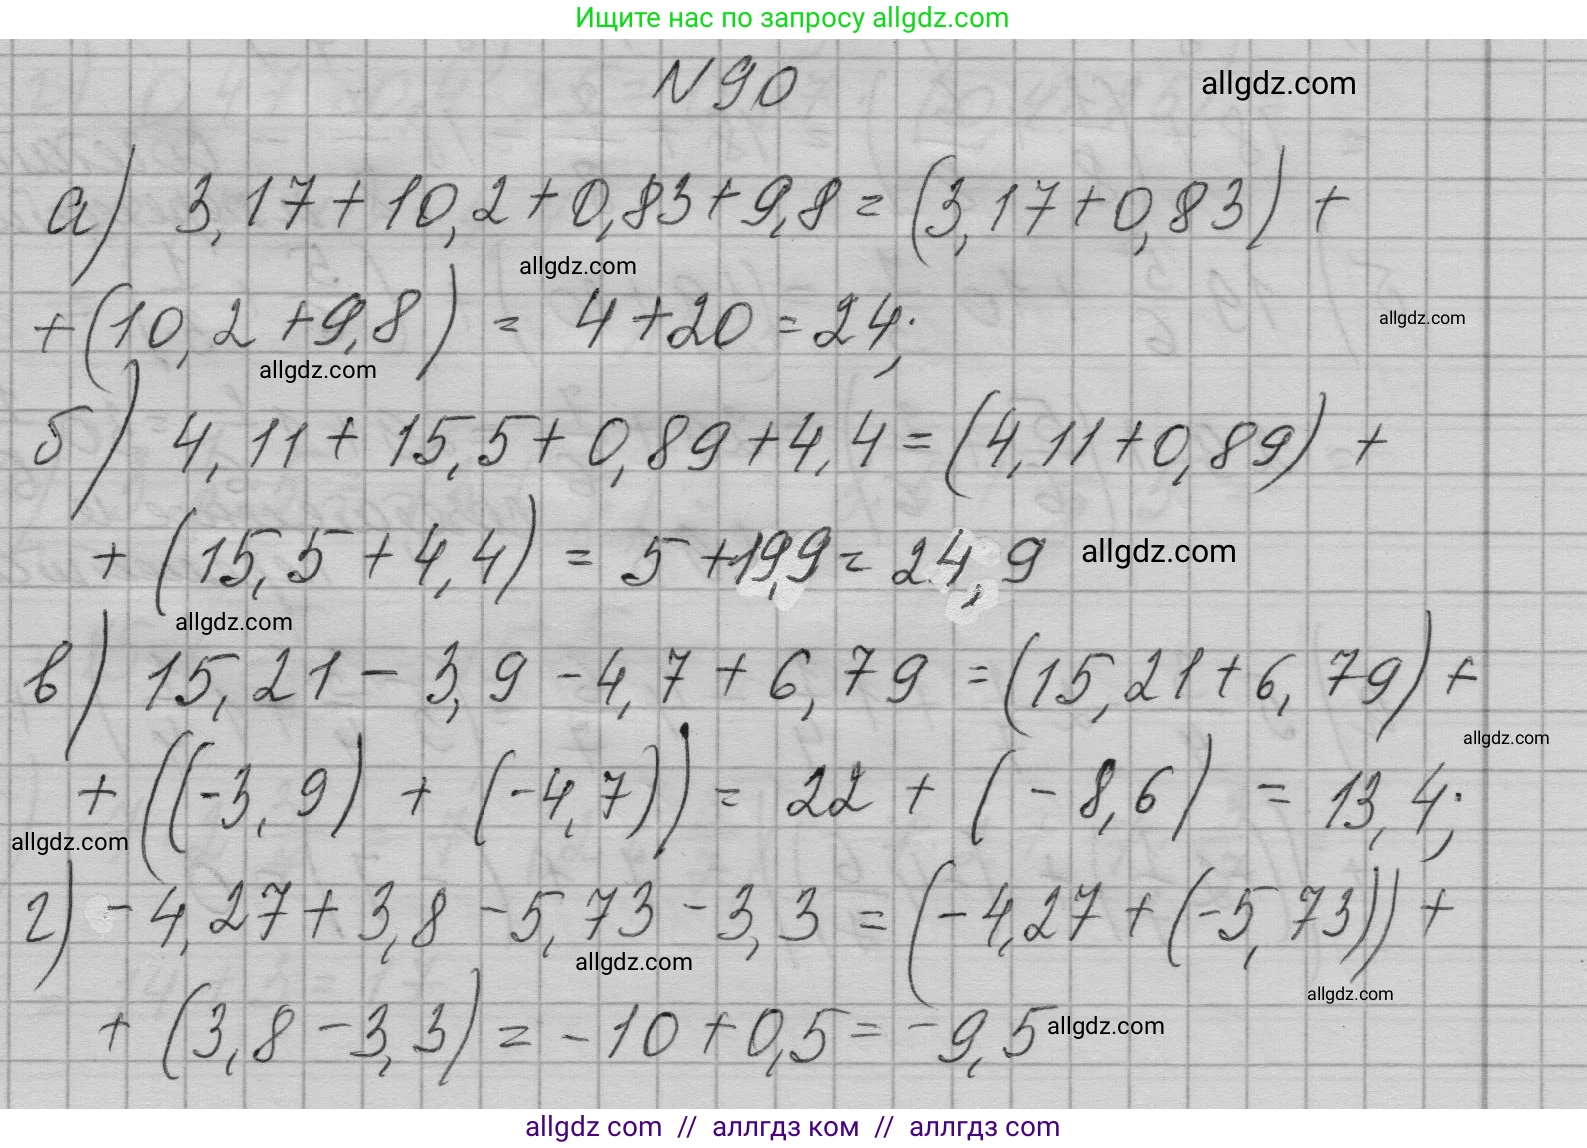 Ищите нас по запросу allgdz.com
N90
allgdz.com
а) 3,17+10,2+0,83+9,8=(3,17+0,83)+
allgdz.com
+(10,2+9,8)=4+20=24;
allgdz.com
allgdz.com
б) 4,11+15,5+0,89+4,4=(4,11+0,89)+
+(15,5+4,4)=5+19,9=24,9
allgdz.com
allgdz.com
в) 15,21-3,9-4,7+6,79=(15,21+6,79)+
allgdz.com
+((-3,9)+(-4,7))=22+(-8,6)=13,4;
allgdz.com
г) -4,27+3,8-5,73-3,3=(-4,27+(-5,73))+
allgdz.com
allgdz.com
+(3,8-3,3)=-10+0,5=-9,5
allgdz.com
allgdz com // аллгдз ком // аллгдз com